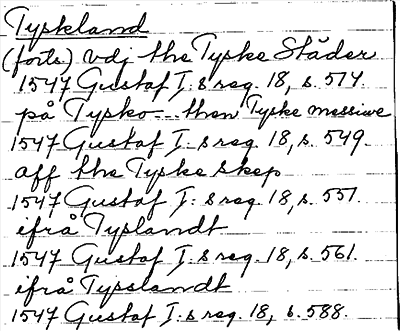 Tyskland
(forts.) vdj the Tyske Städer
1547 Gustaf I:s reg. 18, s. 514.
på Tysko - then Tyske messiwe
1547 Gustaf I:s reg. 18, s. 549.
aff the Tyske skep
1547 Gustaf I:s reg. 18, s. 551.
ifrå Tyslandt
1547 Gustaf I:s reg. 18, s. 561.
ifrå Typslandt
1547 Gustaf I:s reg. 18, s. 588.